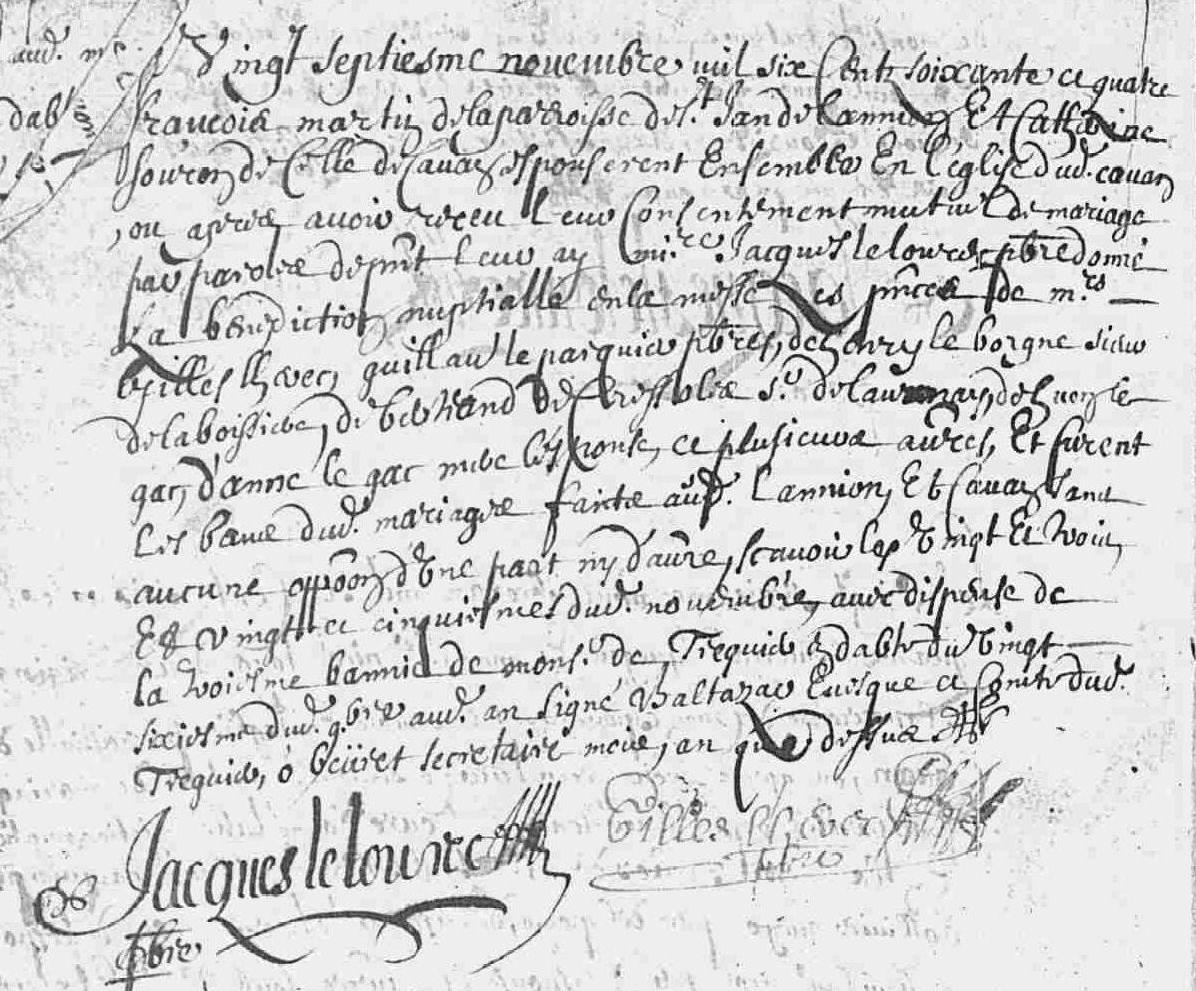 aud. me
dab
Vingt septiesme novembre mil six Centz soixante et quatre
francois martin de la parroisse de St. Jan de lannion Et Catherine
souron de Celle de Cavan esponserent Ensemble En l'eglise dud. cavan
, ou apres avoir receu leur Consentement mutuel de mariage
par parolles de pnt leur ay mi.re Jacques le lourec pbre donné
La benediction nuptialle en la messe Es pnces de m.rs
Gilles lhever, guillau le parquier pbres, de henry le borgne sieur
de la boissiere, de bertrand de Cressolles Sr. de launay, de huon le
gac, d'anne le gac mere de l'esponse, et plusieurs aures, Et furent
Les bans dud. mariages faicts aud. Lannion Et Cavan sans
aucune oppoon d'Une part ny d'aure, scavoir les Vingt Et trois,
Et vingt et cinquiesmes dud. novembre, avec dispense de
la troisesme bannie de mons.r de Treguier dabté du Vingt
sixiesme dud. 9bre aud. an signé Baltazar Evesque et Comte dud.
Treguier, o beuret secretaire mois, an que dessus
Jacques le lourec
Gilles lhever
pbre
pbre